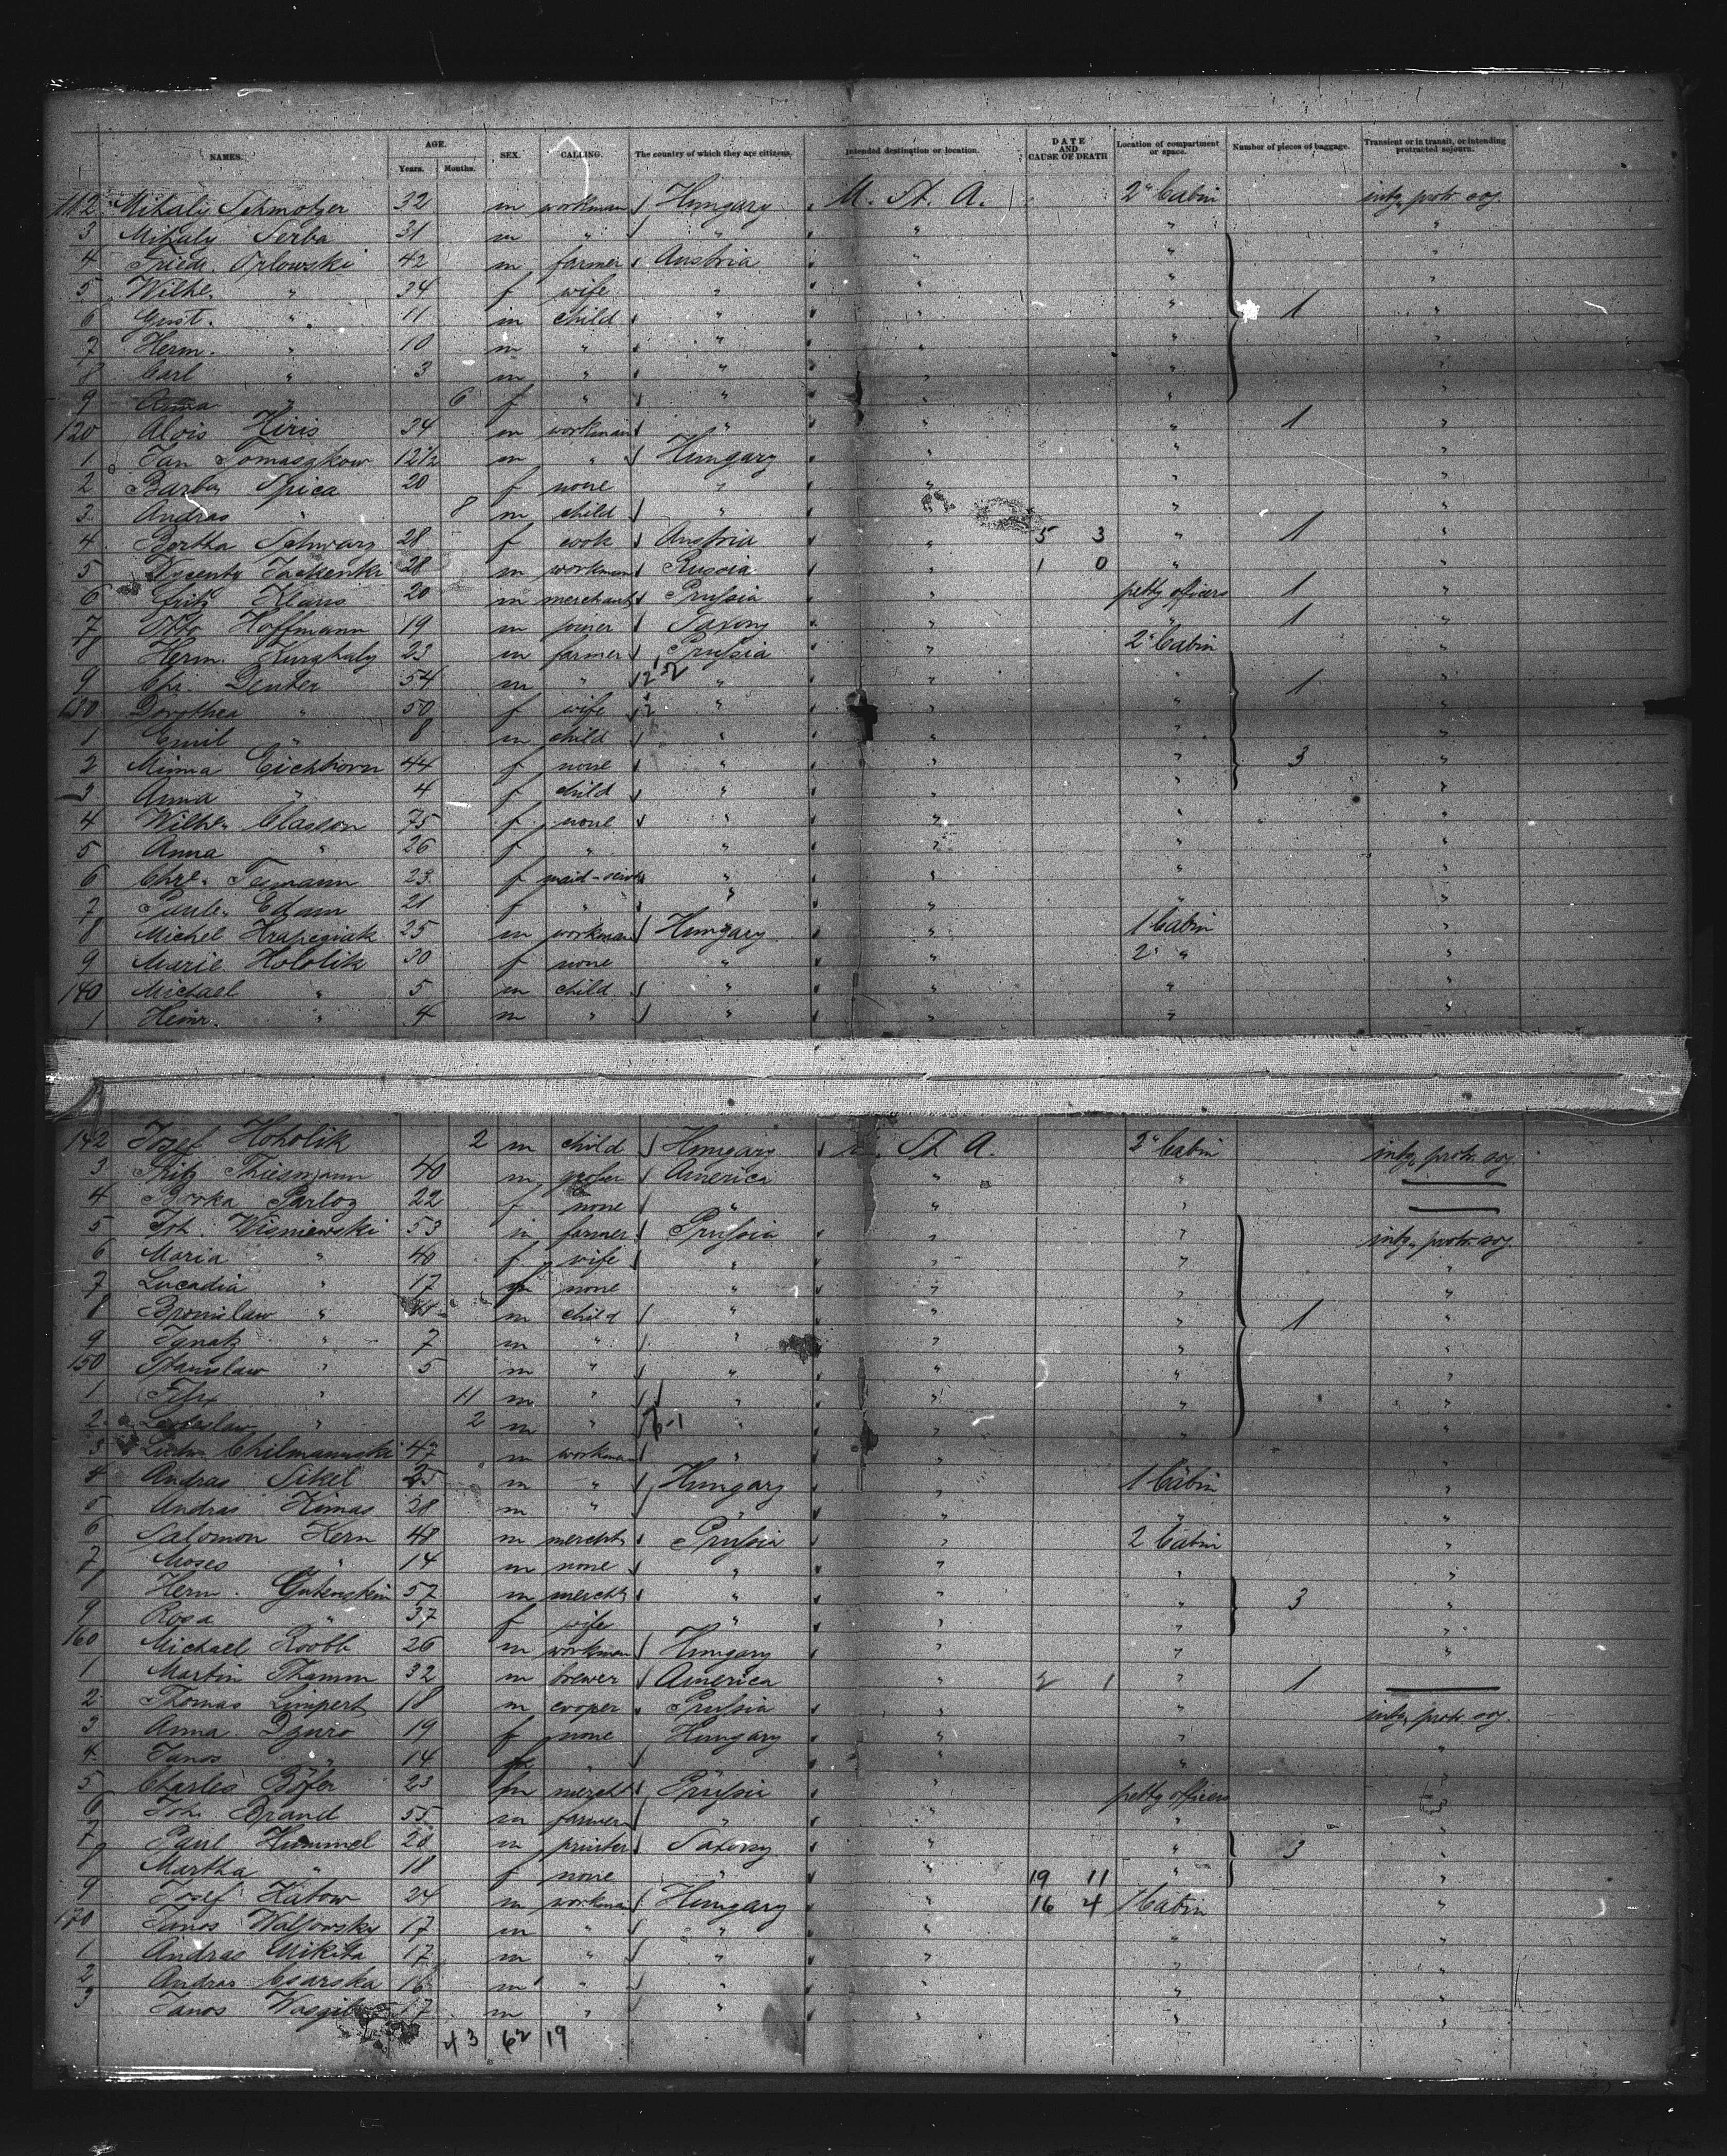 NAMES. AGE. Years. Months. SEX. CALLING. The country of which they are citizens. Intended destination or location. DATE AND CAUSE OF DEATH Location of compartment or space. Number of pieces of baggage. Transient or in transit, or intending protracted sojourn.
112 Mihaly Schmotzer 32 m workman Hungary U. St. A. 2" Cabin intg. protr. soj.
3 Mihaly Serba 31 m " " " " "
4 Friedr. Orlowski 42 m farmer Austria " " "
5 Wilhe. " 34 f wife " " " "
6 Gust. " 11 m child " " " 1 "
7 Herm. " 10 m " " " " "
8 Carl " 3 m " " " " "
9 Anna " 6 f " " " " "
120 Alois Hiris 34 m workman " " " 1 "
1 Jan Tomaszkow 12 1/2 m " Hungary " " "
2 Barba Spica 20 f none " " " "
3 Andras " 8 m child " " " "
4 Bertha Schwarz 28 f cook Austria " 5 3 " 1 "
5 28 m workman Russia " 1 0 " "
6 Fritz Klaus 20 m merchant Prussia " petty officers 1 "
7 Otto Hoffmann 19 m joiner Saxony " " 1 "
8 Herm. Kurshaly 23 m farmer Prussia " 2" Cabin "
9 Chr. Deuter 54 m " " " " 1 "
130 Dorothea " 50 f wife " " " "
1 Emil " 8 m child " " " "
2 Minna Eichhorn 44 f none " " " 3 "
3 Anna " 4 f child " " " "
4 Wilhe. Classon 75 f none " " " "
5 Anna " 26 f " " " " "
6 Chre. Tesmann 23 f maid-serv " " " "
7 Paule. Edam 21 f " " " " "
8 Michel Hrapesiak 25 m workman Hungary " 1 Cabin "
9 Marie Hololik 30 f none " " 2 " "
140 Michael " 5 m child " " " "
1 Heinr. " 4 m " " " " "
142 Josef Hoholik 2 m child Hungary St. A. 2" Cabin intg. protr. soj.
3 Fritz Thiesmann 40 m America " "
4 Borka Parlog 22 f none " " "
5 Joh. Wisniewski 53 m farmer Prussia " " intg. protr. soj.
6 Maria " 40 f wife " " " "
7 Lucadia " 17 f none " " " "
8 Bronislaw " m child " " " 1 "
9 Ignatz " 7 m " " " " "
150 Stanislaw " 5 m " " " " "
1 Felix " 11 m " " " " "
2 Ladislaw " 2 m " " " " "
3 Ludw. Chilmanuski 47 m workman " " "
4 Andras Sikel 25 m " Hungary " 1 Cabin "
5 Andras Kimas 28 m " " " " "
6 Salomon Kern 48 m mercht Prussia " 2 Cabin "
7 Moses " 14 m none " " " "
8 Herm. Gutenstein 57 m mercht " " " 3 "
9 Rosa " 37 f wife " " " "
160 Michael Roobb 26 m workman Hungary " " "
1 Martin Thamm 32 m brewer America " 2 1 " 1
2 Thomas Limpert 18 m cooper Prussia " " intg. protr. soj.
3 Anna Dzuro 19 f none Hungary " " "
4 Janos " 14 " " " "
5 Charles 23 m mercht Prussia " petty officers
6 Joh. Brand 55 m farmer " " " "
7 Paul Hummel 20 m printer Saxony " " 3 "
8 Martha " 18 f none " " 19 11 " "
9 Josef Katow 24 m workman Hungary " 16 4 1 Cabin "
170 Janos Walsowsky 17 m " " " " "
1 Andras Mikita 17 m " " " " "
2 Andras Csarska 16 m " " " " "
3 Janos 17 m " " " " "
43 62 19